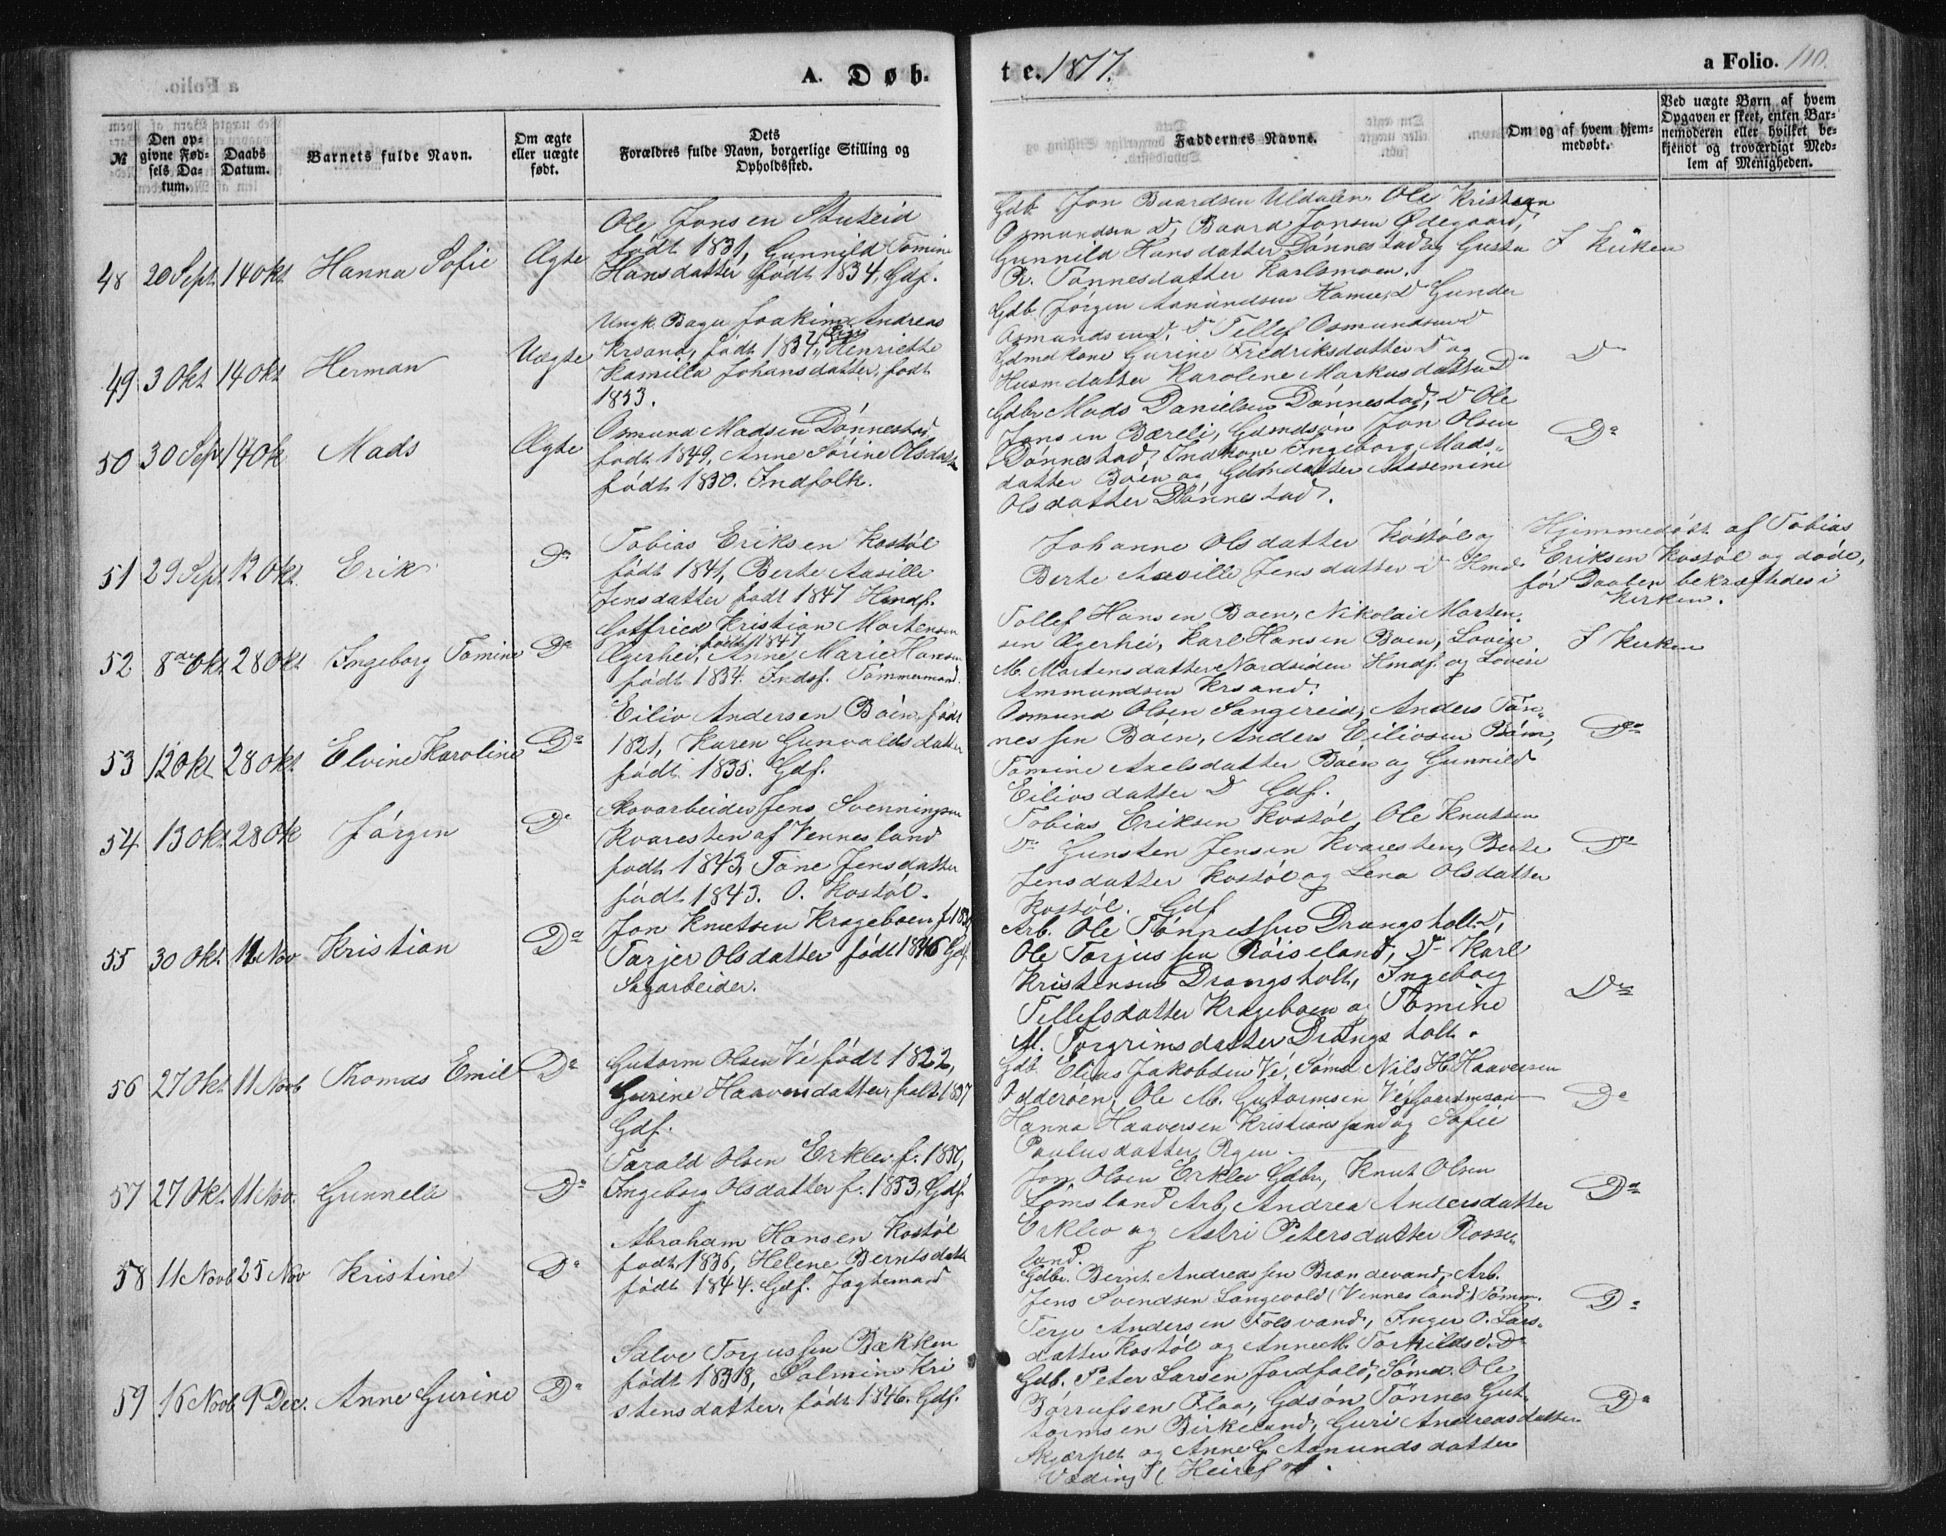 A. Døb.
te. 1877.
a Folio. 110.
№
Den opgivne Fødsels Datum.
Daabs Datum.
Barnets fulde Navn.
Om ægte eller uægte født.
Dets Forældres fulde Navn, borgerlige Stilling og Opholdssted.
Faddernes Navne.
Om og af hvem hjemmedøbt.
Ved uægte Børn af hvem Opgaven er skeet, enten Barnemoderen eller hvilket bekjendt og troværdigt Medlem af Menigheden.
48 20 Sept 14 Okt Hanna Sofie Ægte
Ole Jonsen Stutreid
født 1831, Gunnild Tomine
Hansdatter født 1834, Gdf.
Gdb. Jon Baardsen Uldalen, Ole Kristian
Osmundsen Do, Baard Jonsen Ødegaard,
Gunnild Hansdatter Dønnestad og Gusta
R. Tønnesdatter Karlsmoen.
I Kirken
49 3 Okt 14 Okt Herman Uægte
Ungk. Joakim Andreas
Krsand, født 1834, Pige Henriette
Kamilla Johansdatter, født
1853.
Gdb. Jørgen Aanundsen Hamre, Do Gunder
Osmundsen Do, Do Tellef Osmundsen Do
Gdmd kone Gurine Fredriksdatter Do og
Husmdatter Karoline Markusdatter Do
Do
50 30 Sept 14 Ok Mads Ægte
Osmund Madsen Dønnestad
født 1849, Anne Sørine Olsdatt
født 1830. Indfolk.
Gdbr Mads Danielsen Dønnestad, Do Ole
Jonsen Bæreli, Gdmdsøn Jon Olsen
Dønnestad, Indkone Ingeborg Mads-
datter Boen og Gdmdatter Aasemine
Olsdatter Dønnestad.
Do
51 29 Sept 12 Okt Erik Do
Tobias Eriksen Kostøl
født 1841, Berte Aasille
Jensdatter født 1847 Hmdf.
Johanne Olsdatter Kostøl og
Berte Aasille Jensdatter Do Hmd
Hjemmedøbt af Tobias
Eriksen Kostøl og døde,
før Daaben bekræftedes i
Kirken.
52 8de Okt 28 Okt Ingeborg Tomine Do
Gotfried Kristian Mortensen
Ægerhei, født 1847 Anne Marie Hansd
født 1834. Indsf. Tømmermand.
Tollef Hansen Boen, Nikolai Morten-
sen Ægerhei, Karl Hansen Boen, Lovise
M. Mortensdatter Nordsiden Hmdf. og Lovise
Ammundsen Krsand.
I Kirken
53 12 Okt 28 Okt Elvine Karoline Do
Eiliv Andersen Boen, født
1821, Karen Gunvaldsdatter
født 1835. Gdf.
Osmund Olsen Sangereid, Anders Tøn-
nessen Boen, Anders Eilivsen Boen,
Tomine Axelsdatter Boen og Gunnild
Eilivsdatter Do Gdf.
Do
54 13 Okt 28 Ok Jørgen Do
Skovarbeider Jens Svenningsen
Kvaresten af Vennesland
født 1843, Tone Jensdatter
født 1843. O. Kostøl.
Tobias Eriksen Kostøl, Ole Knutsen
Do Gunsten Jensen Kvaresten, Berte
Jensdatter Kostøl og Lena Olsdatter
Kostøl. Gdf
Do
55 30 Okt 11 Nov Kristian Do
Jon Knutsen Krageboen f. 183
Tarjer Olsdatter født 1846 Gdf.
Sagarbeider.
Arb. Ole Tønnessen Drangsholt Do,
Ole Torjussen Røiseland, Do Karl
Kristensen Drangsholt, Ingeborg
Tellefsdatter Krageboen og Tomine
M. Torgrimsdatter Drangsholt.
Do
56 27 Okt 11 Novb Thomas Emil Do
Gutorm Olsen Vé født 1822,
Gurine Haavorsdatter, født 1837
Gdf.
Gdb. Elias Jakobsen Vé, Sømd Nils H. Haaversen
Odderøen, Ole M. Gutormsen Vé
Hanna Haaversen Kristianssand og Sofie
Paulusdatter Rgen.
Do
57 27 Okt. 11 Nov. Gunnela Do
Tarald Olsen Erklev f. 1850,
Ingeborg Olsdatter f. 1853, Gdf.
Jon Olsen Erklev Gdbr, Knut Olsen
Lømsland Arb, Andrea Andersdatter
Erklev og Astri Petersdatter Rosse-
land.
Do
58 11 Novb 25 Nov Kristine Do
Abraham Hansen Kostøl
født 1836, Helene Berntsdatt
født 1844. Gdf. Jagtemand
Gdbr. Bernt Andreassen Brændevand, Arb.
Jens Svendsen Langevold (Vennesland) Tømm.
Terje Andersen Folsvand, Inger O. Lars-
datter Kostøl og Anne M. Torkildsd. Do
Do
59 16 Novb 9 Dec. Anne Gurine Do
Salve Torjussen Bækken
født 1838, Salmine Kri
stensdatter, født 1846. Gdf.
Gdb. Peter Larsen Jordfald, Sømd. Ole
Børrufsen Flaa, Gdsøn Tønnes Gut
tormsen Birkeland, Guri Andreasdatter
Skjærpet og Anne G. Aanundsdatter
Væding (Heiref.
Do